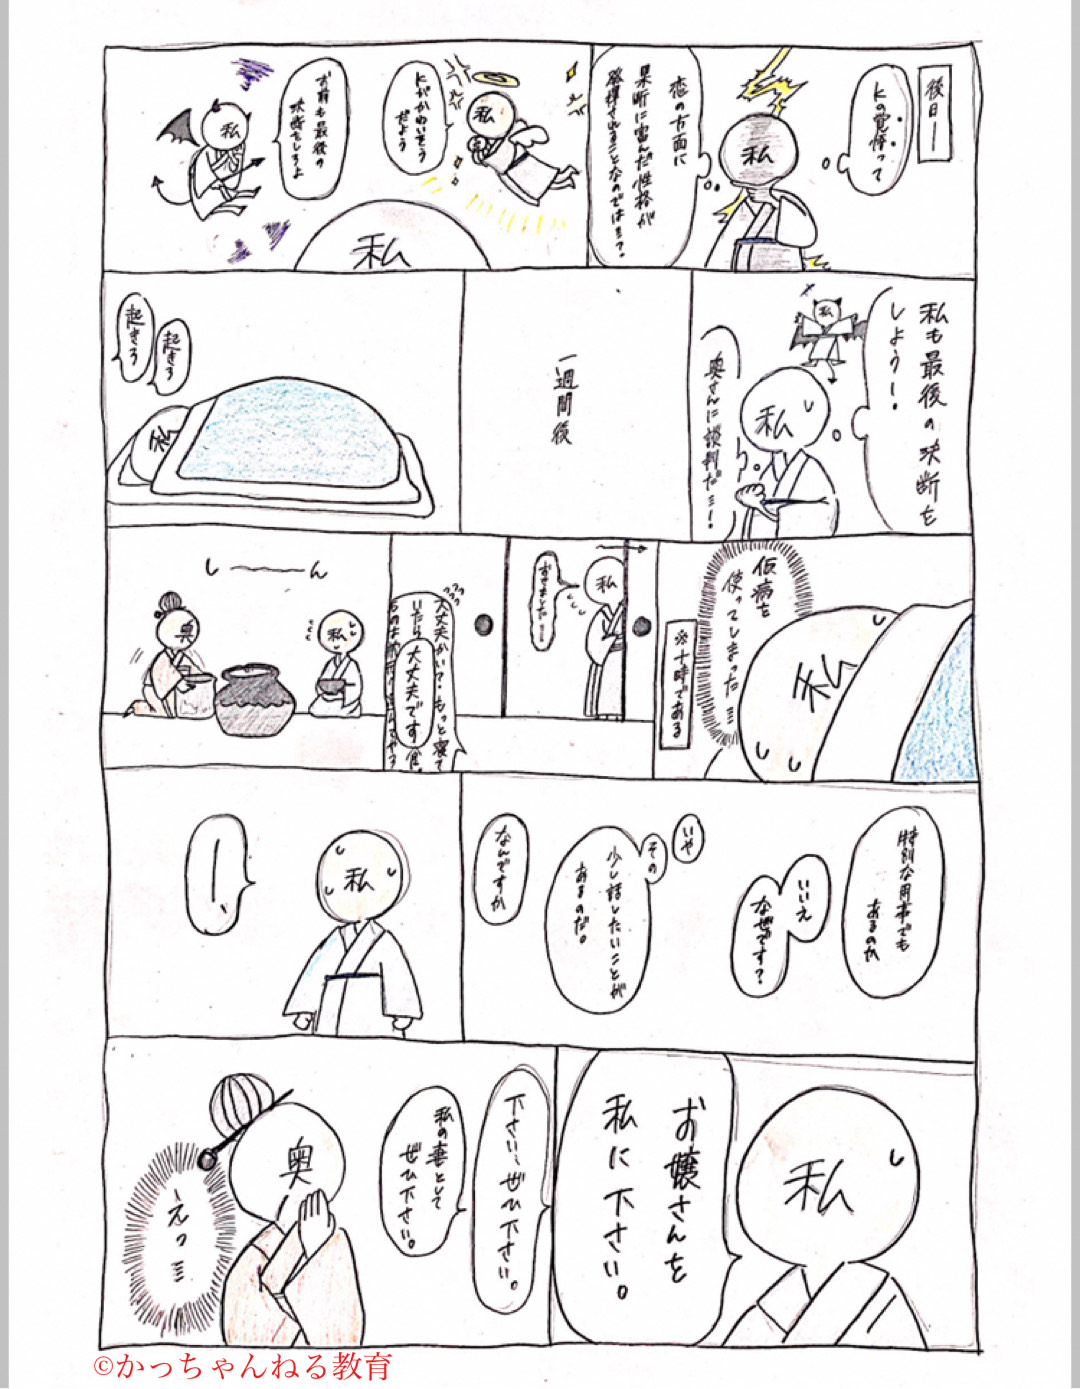 後日―
Kの覚悟って
恋の方面に
果断に富んだ性格が
発揮されることなのでは…?
私
Kがかわいそう
だよう
私
お前も最後の
決断をしろよ
私
私
私も最後の決断を
しよう!
私
奥さんに談判だ…!
私
一週間後
起きろ
起きろ
私
仮病を
使ってしまった…
※十時である
私
おきました…
私
大丈夫かい?もっと寝て
いたら
大丈夫です
しーーーん
私
奥
特別な用事でも
あるのか
いいえ
なぜです?
いや
その
少し話したいことが
あるのだ。
なんですか
私
―、
お嬢さんを
私に下さい。
私
下さい、ぜひ下さい。
私の妻として
ぜひ下さい。
奥
えっ…
©かっちゃんねる教育